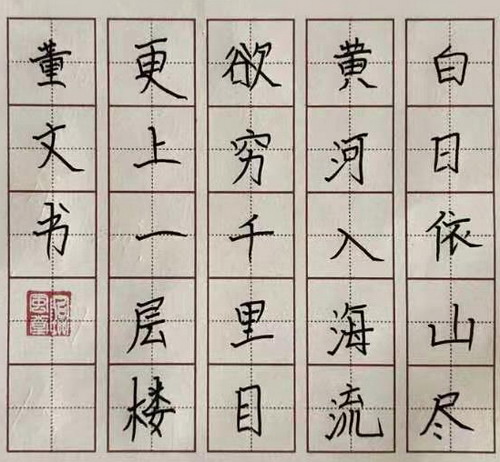 白日依山尽
黄河入海流
欲穷千里目
更上一层楼
董文书